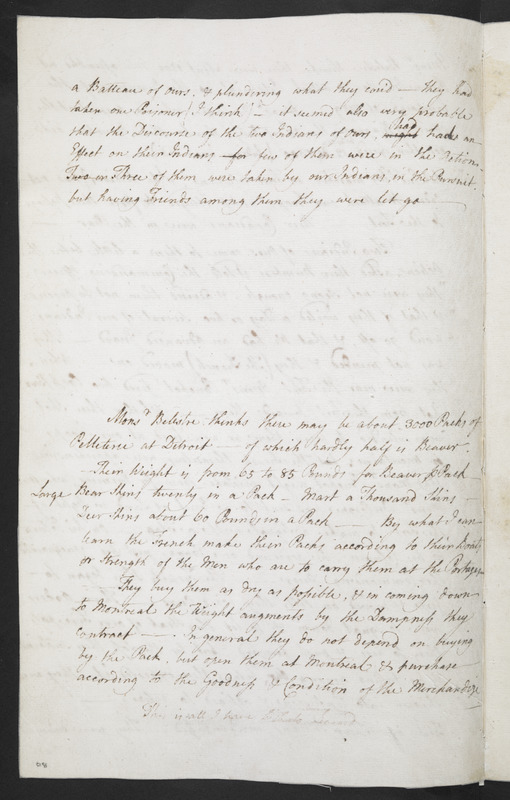 a Batteau of ours, & plundering what they coud — they had
taken one Prisoner (I think) — it seemed also very probable
that the Discourse of the two Indians of ours, might had had an
Effect on their Indians for few of them were in the Action
Two or Three of them were taken by our Indians, in the Pursuit
but having Friends among them they were let go —
Monsr Belestre thinks there may be about 3000 Packs of
Pelleterie at Detroit — of which hardly half is Beaver —
— Their Weight is from 65 to 85 Pounds for Beaver p Pack
Large Bear Skins twenty in a Pack — Mart a Thousand Skins —
Deer Skins about 60 Pounds in a Pack — By what I can
learn the French make their Packs according to their Boats
or Strength of the Men who are to carry them at the Portages
They buy them as dry as possible, & in coming down
to Montreal the Weight augments by the Dampness they
contract — In general they do not depend on buying
by the Pack, but open them at Montreal & purchase
according to the Goodness & Condition of the Merchandize
This is all I have